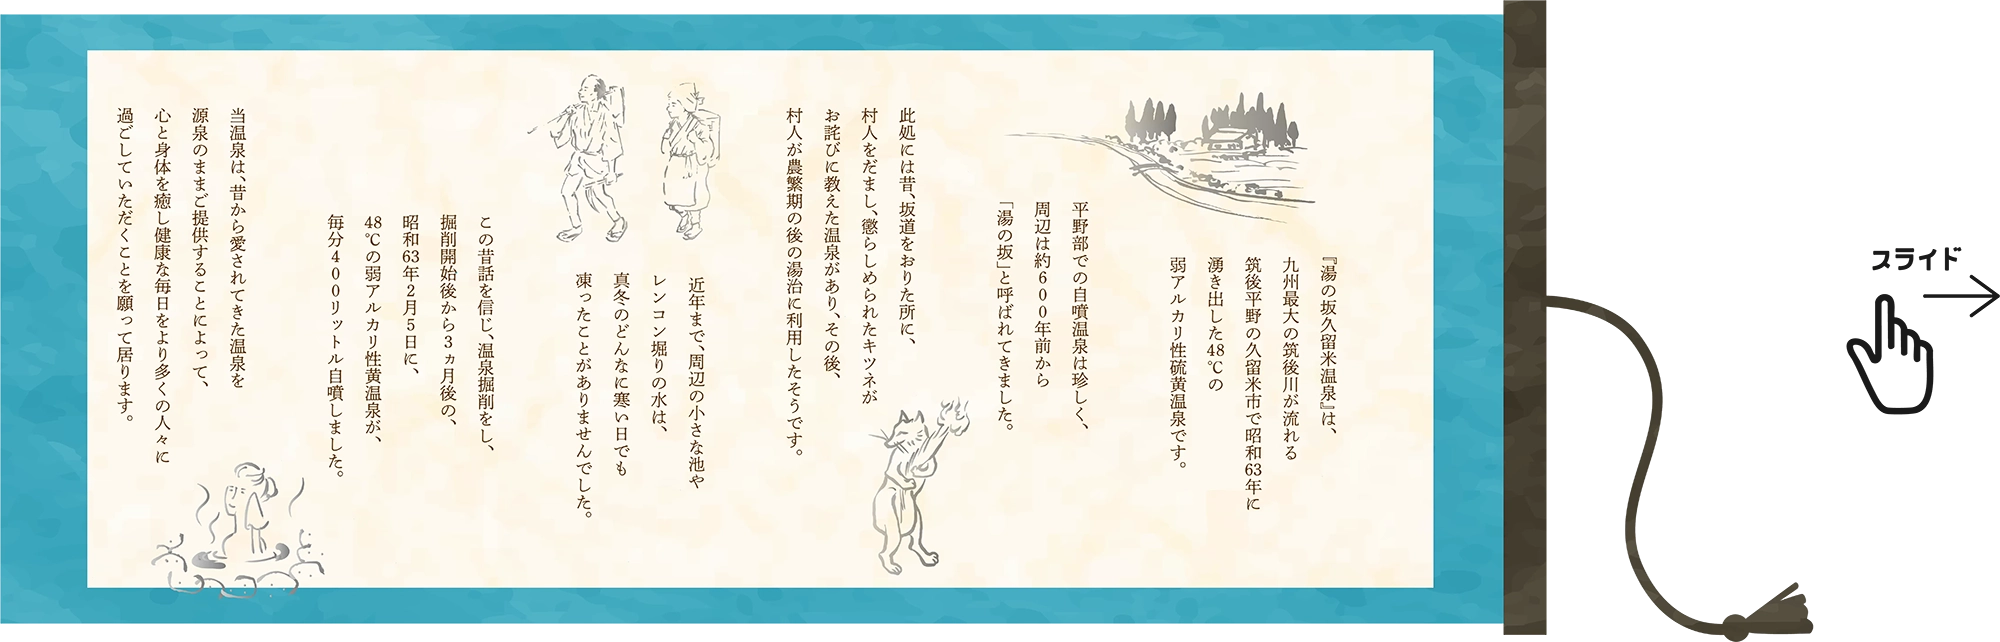 『湯の坂久留米温泉』は、
九州最大の筑後川が流れる
筑後平野の久留米市で昭和63年に
湧き出した48℃の
弱アルカリ性硫黄温泉です。
平野部での自噴温泉は珍しく、
周辺は約600年前から
「湯の坂」と呼ばれてきました。
此処には昔、坂道をおりた所に、
村人をだまし、懲らしめられたキツネが
お詫びに教えた温泉があり、その後、
村人が農繁期の後の湯治に利用したそうです。
近年まで、周辺の小さな池や
レンコン堀りの水は、
真冬のどんなに寒い日でも
凍ったことがありませんでした。
この昔話を信じ、温泉掘削をし、
掘削開始後から3ヵ月後の、
昭和63年2月5日に、
48℃の弱アルカリ性黄温泉が、
毎分400リットル自噴しました。
当温泉は、昔から愛されてきた温泉を
源泉のままご提供することによって、
心と身体を癒し健康な毎日をより多くの人々に
過ごしていただくことを願って居ります。
スライド